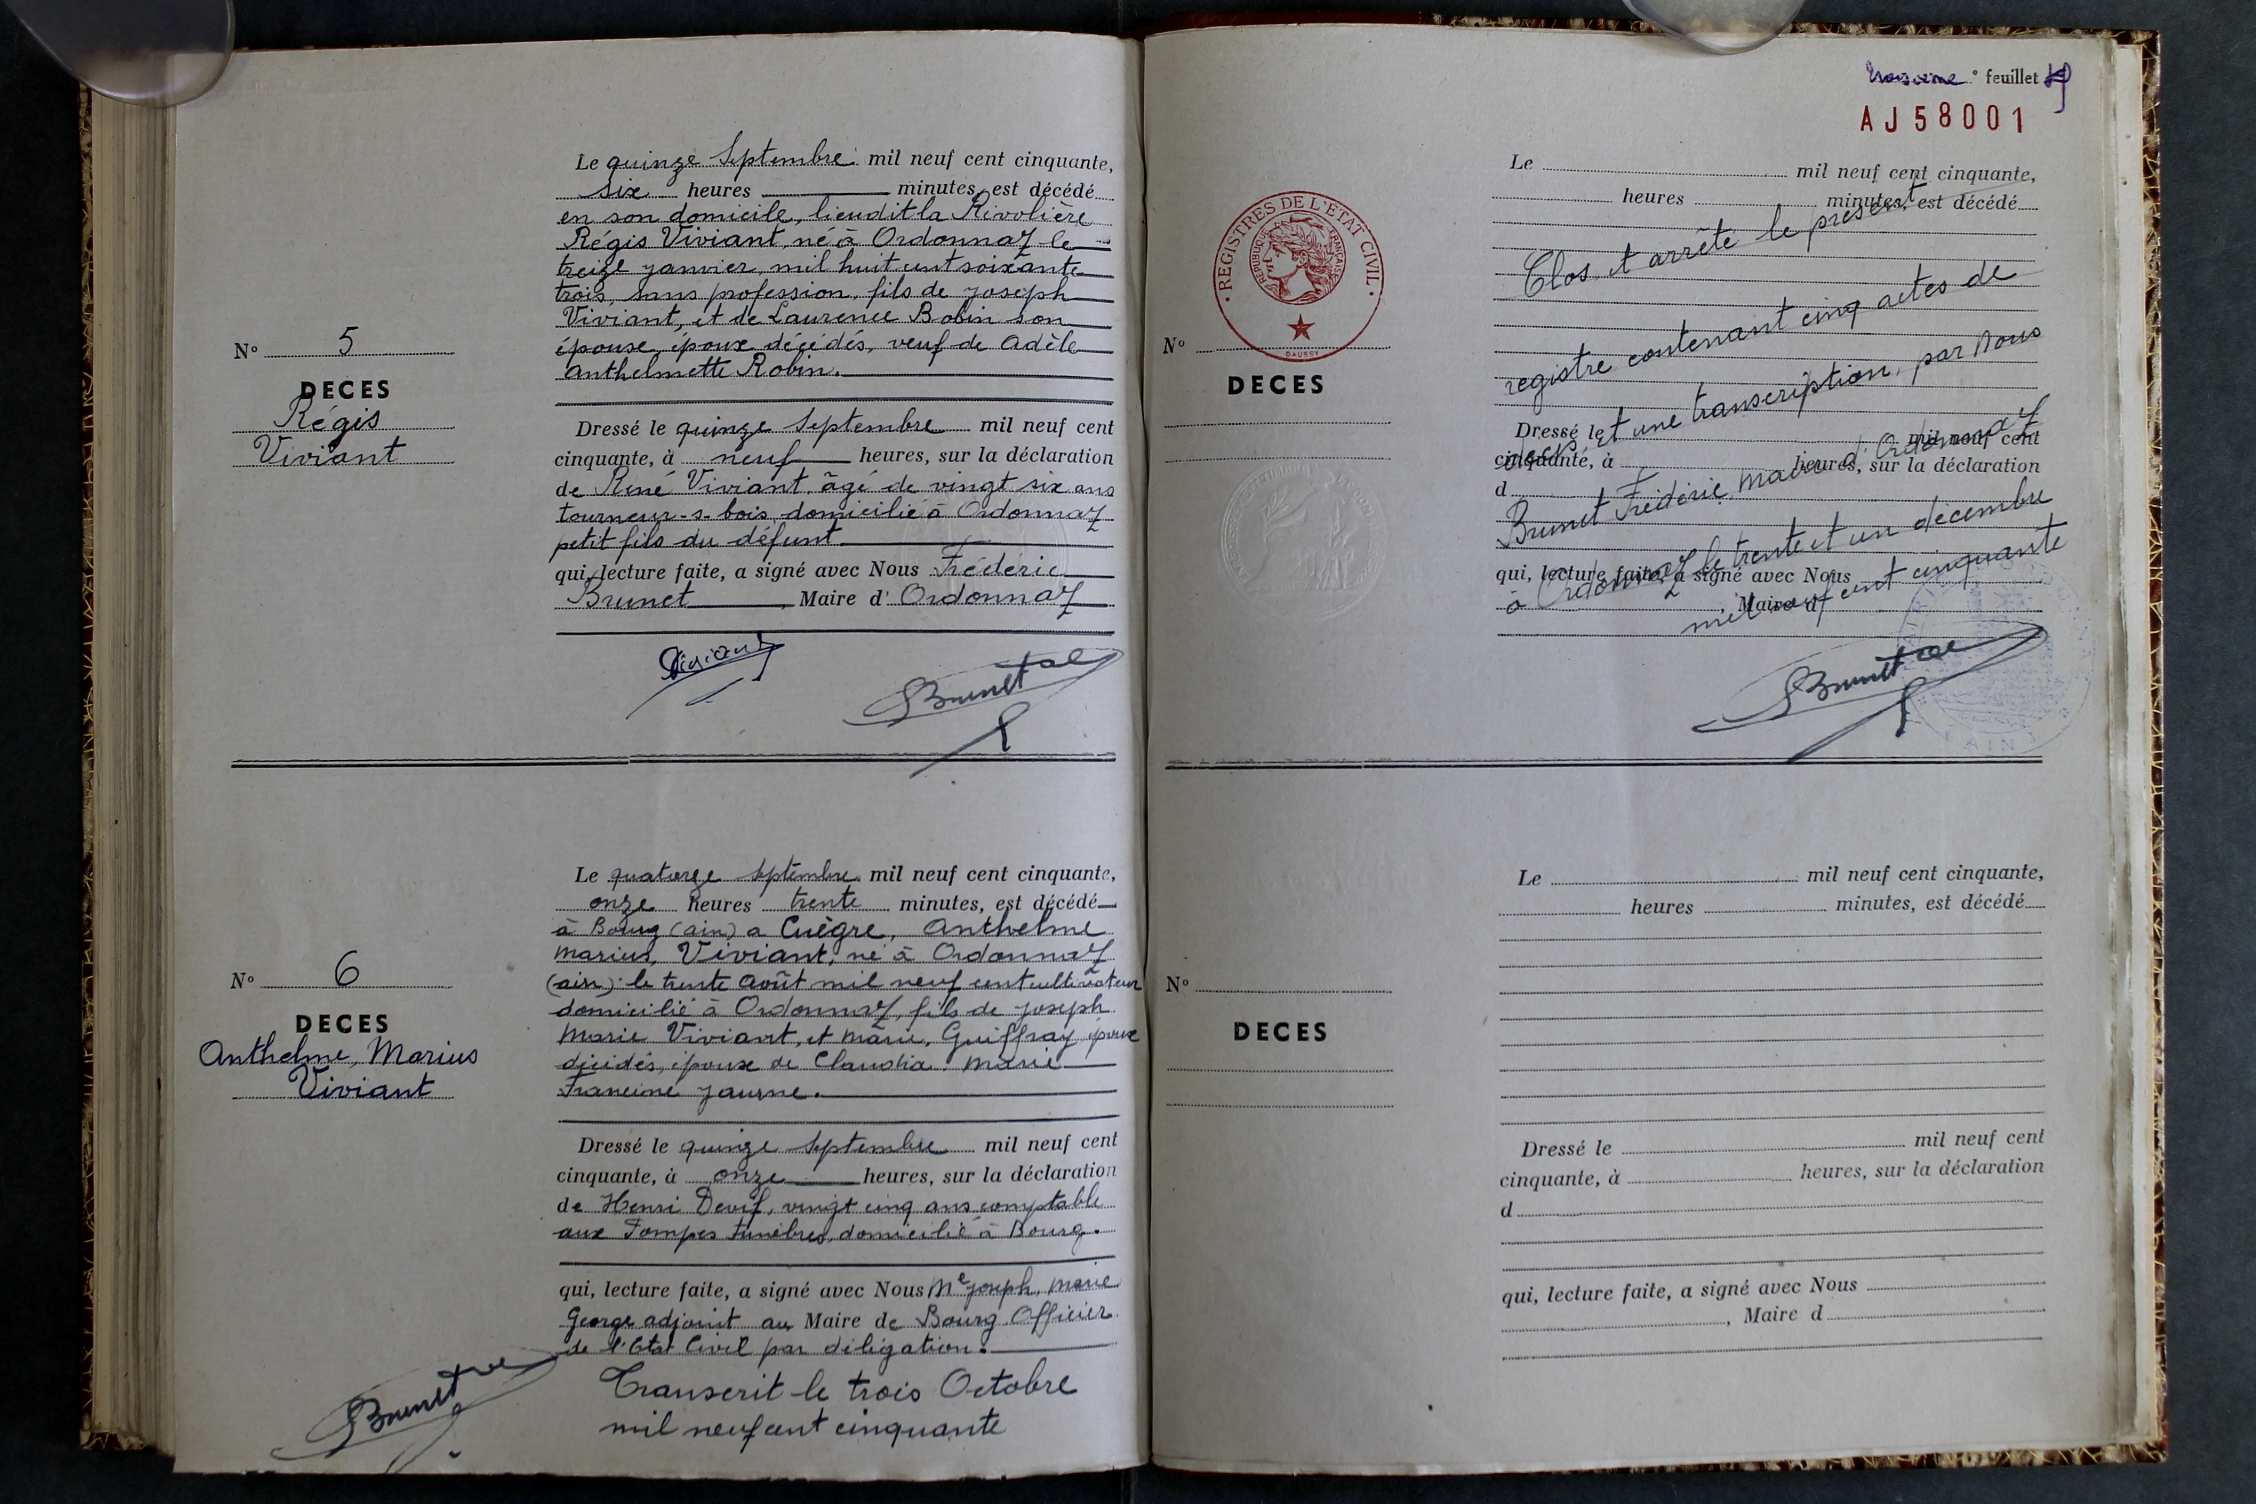 Le quinze Septembre mil neuf cent cinquante,
six heures minutes, est décédé
en son domicile, lieudit la Rivolière
Régis Viviant, né à Ordonnaz le
treize janvier, mil huit cent soixante
trois, sans profession, fils de Joseph
Viviant, et de Laurence Bobin son
épouse, époux décédés, veuf de Adèle
Anthelmette Robin.
N° 5
DECES
Régis
Viviant
Dressé le quinze Septembre mil neuf cent
cinquante, à neuf heures, sur la déclaration
de René Viviant, âgé de vingt six ans
tourneur-s-bois, domicilié à Ordonnaz
petit fils du défunt.
qui, lecture faite, a signé avec Nous Frédéric
Brunet, Maire d' Ordonnaz
Viviant
Brunet
Le quatorze Septembre mil neuf cent cinquante,
onze heures trente minutes, est décédé
à Bourg (ain) a Cuègre, Anthelme
Marius, Viviant, né à Ordonnaz
(ain) le trente Août mil neuf cent cultivateur
domicilié à Ordonnaz, fils de Joseph
Marie Viviant, et Marie, Guiffray époux
décédés, époux de Claudia Marie
Francine Jaurne.
N° 6
DECES
Anthelme, Marius
Viviant
Dressé le quinze Septembre mil neuf cent
cinquante, à onze heures, sur la déclaration
de Henri Devif, vingt cinq ans comptable
aux Pompes funèbres, domicilié à Bourg.
qui, lecture faite, a signé avec Nous Me Joseph, Marie
George adjoint au Maire de Bourg Officier
de l'Etat Civil par déligation.
Transcrit le trois Octobre
mil neuf cent cinquante
Brunet
troisième ° feuillet
AJ58001
Le mil neuf cent cinquante,
heures minutes, est décédé
REGISTRES DE L'ETAT CIVIL
REPUBLIQUE FRANÇAISE
DAUSSY
N°
DECES
Clos et arrêté le présent
registre contenant cinq actes de
décès et une transcription, par Nous
Brunet Frédéric, maire d'Ordonnaz
à Ordonnaz le trente et un décembre
mil neuf cent cinquante
Dressé le mil neuf cent
cinquante, à heures, sur la déclaration
d
qui, lecture faite, a signé avec Nous
, Maire d
Brunet
AIN
Le mil neuf cent cinquante,
heures minutes, est décédé
N°
DECES
Dressé le mil neuf cent
cinquante, à heures, sur la déclaration
d
qui, lecture faite, a signé avec Nous
, Maire d